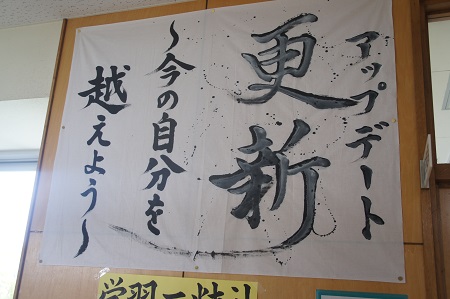 アップデート
更新
~今の自分を
越えよう~
学習